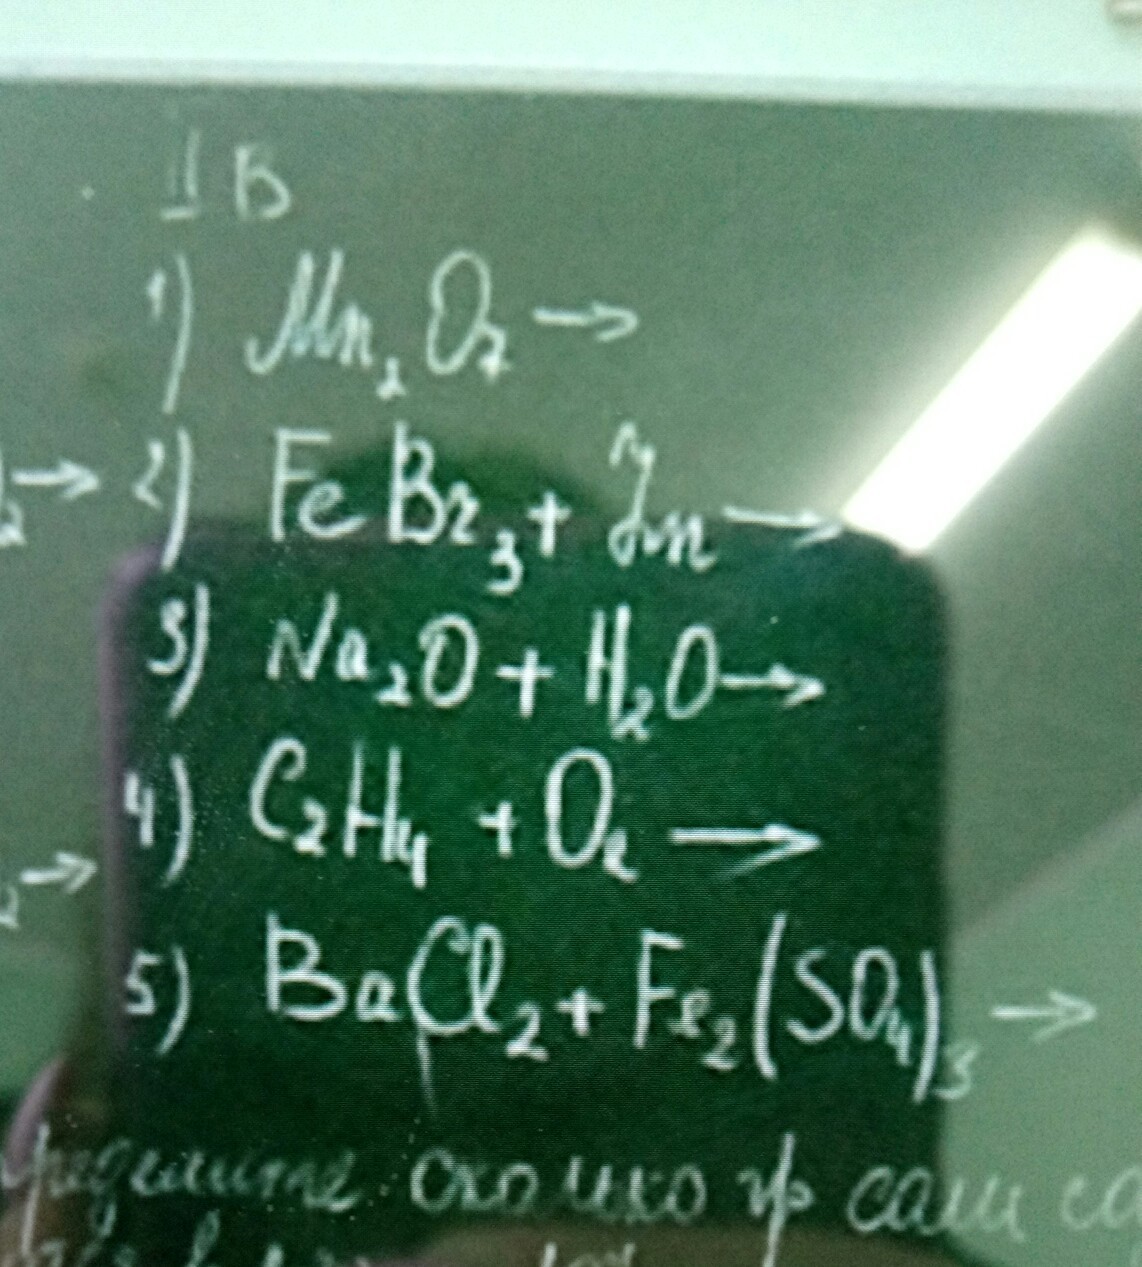 II В
1) Mn₂O₇ →
→ 2) FeBr₃ + Zn →
3) Na₂O + H₂O →
4) C₂H₄ + O₂ →
→
5) BaCl₂ + Fe₂(SO₄)₃ →
сколько гр